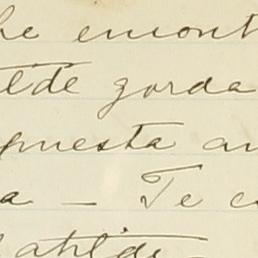 he encont
tilde gorda
puesta an
a - Te c
Matilde